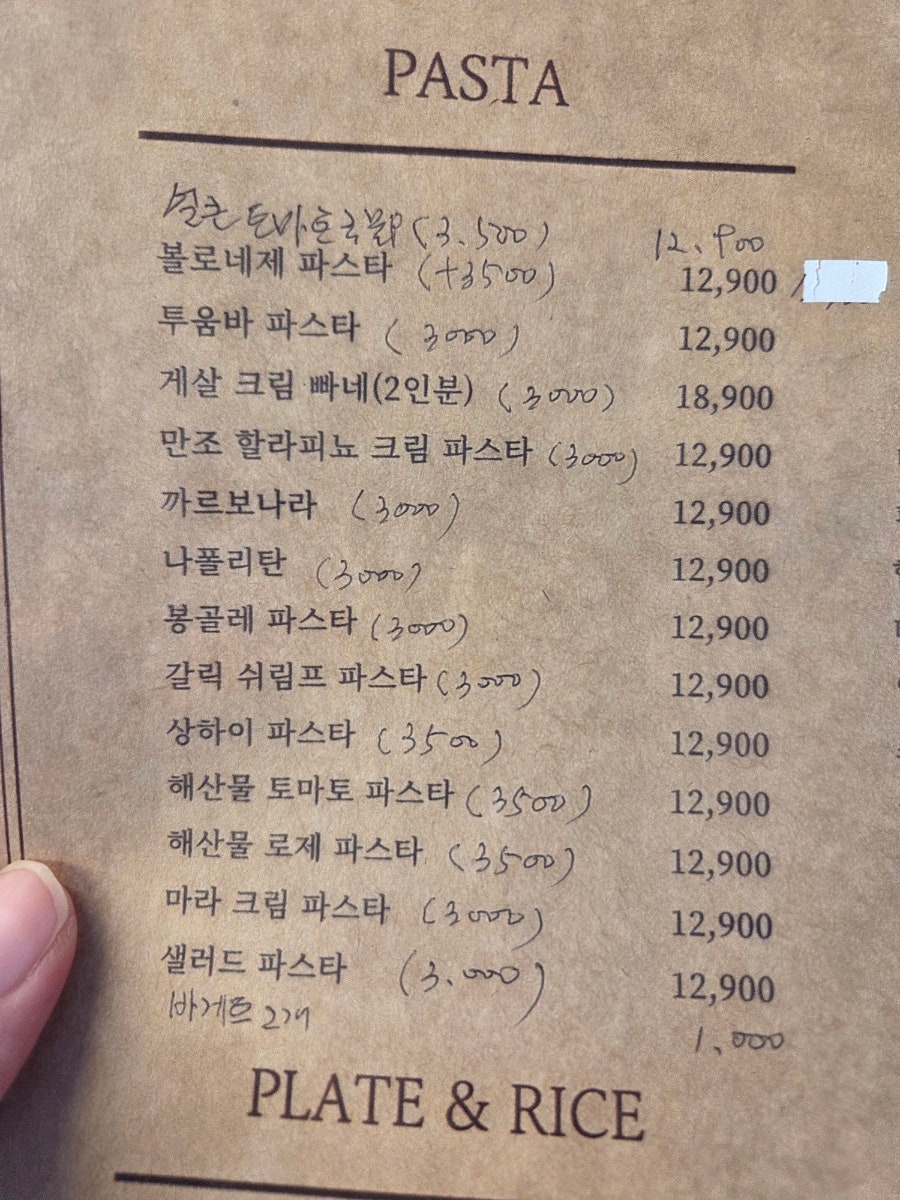 PASTA
얼큰 토마토국물P (3.500) 12.900
볼로네제 파스타 (+3500) 12,900
투움바 파스타 (3000) 12,900
게살 크림 빠네(2인분) (3000) 18,900
만조 할라피뇨 크림 파스타 (3000) 12,900
까르보나라 (3000) 12,900
나폴리탄 (3000) 12,900
봉골레 파스타 (3000) 12,900
갈릭 쉬림프 파스타 (3000) 12,900
상하이 파스타 (3500) 12,900
해산물 토마토 파스타 (3500) 12,900
해산물 로제 파스타 (3500) 12,900
마라 크림 파스타 (3000) 12,900
샐러드 파스타 (3.000) 12,900
바게트 2개 1.000
PLATE & RICE